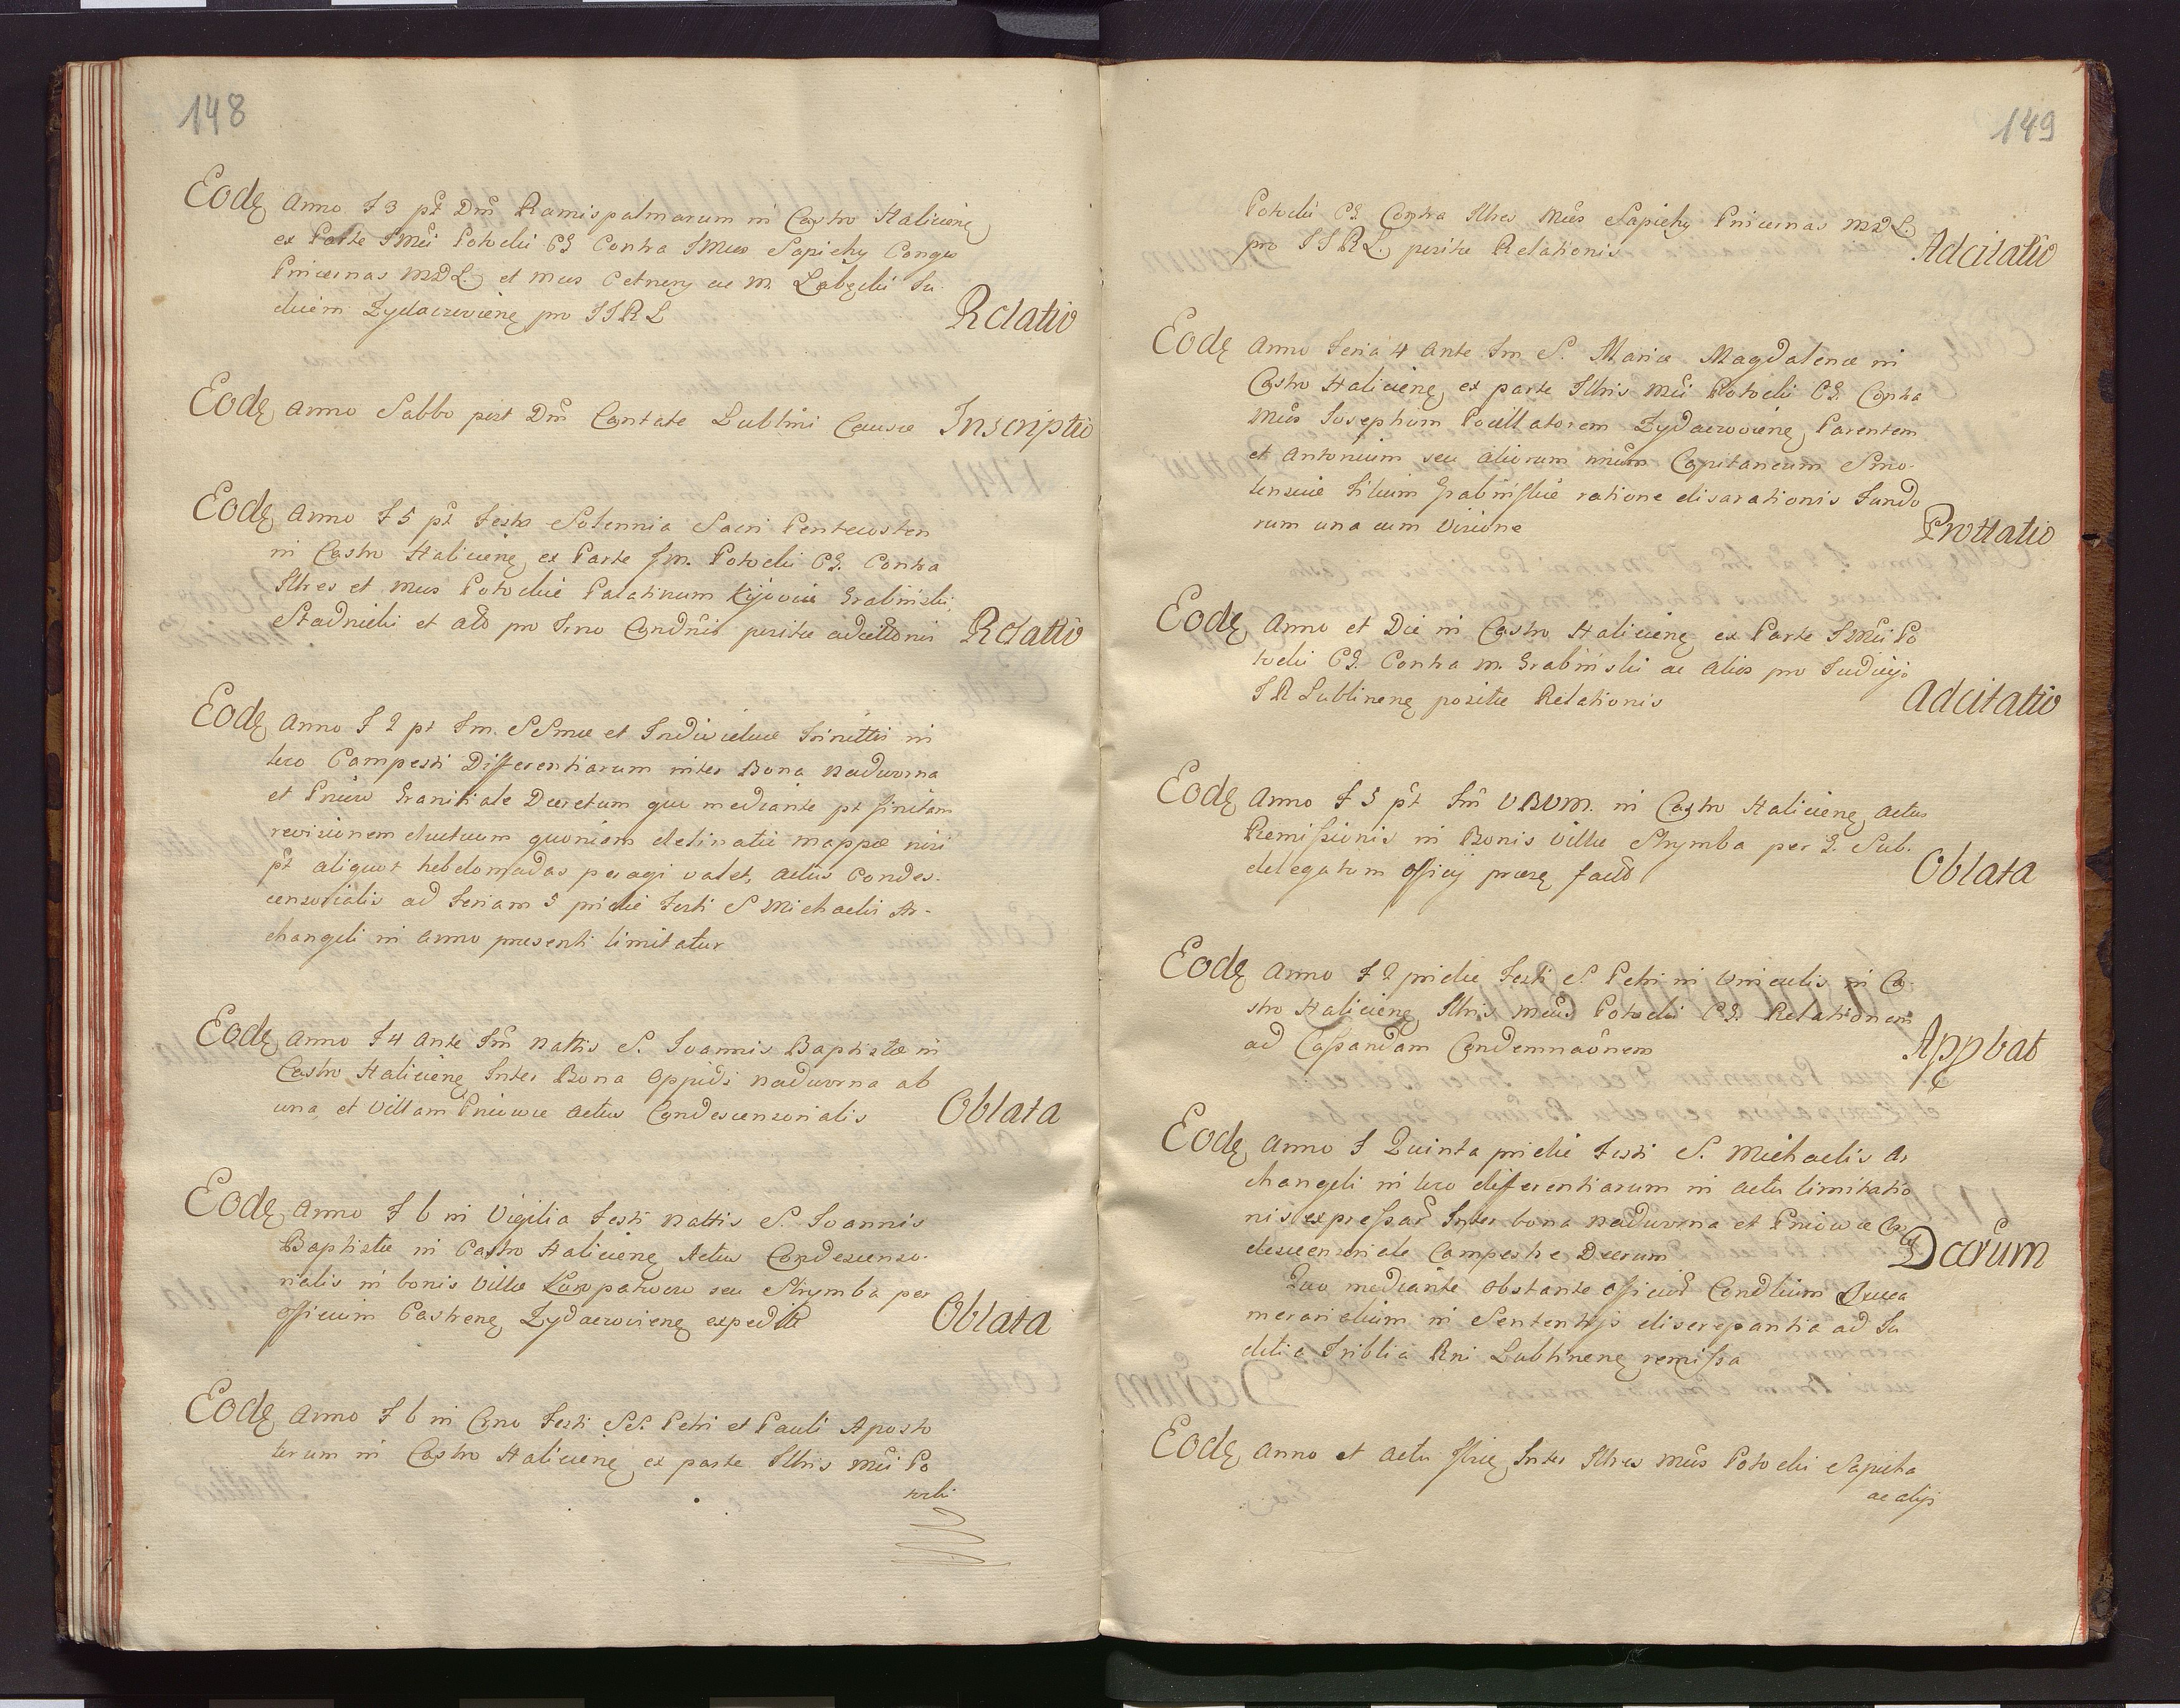 148
Eodę Anno F 3 pt Dm̃ Ramispalmarum in Castro Halicienę
ex Parte IMci Potocki CS Contra IMcos Sapiehy Conges
Pincernas MDL. et Mcos Cetnery ac M. Łabęcki Iu
dicem Zydaczovienę pro IIRL Relatio
Eodę Anno Sabbo post Dm̃ Cantate Lublini Causæ Inscriptio
Eodę Anno F 5 pt Festa Solennia Sacri Pentecosten
in Castro Halicienę ex Parte Jm. Potocki CS. Contra
Illres et Mcos Potockie Palatinum Kijoviæ Grabinski,
Stadnicki et alõ pro Irno Condnis positæ adcittõnis Relatio
Eodę Anno F 2 pt Fm. SSmæ et Individuæ Trinittis in
loco Campestri Differentiarum inter Bona Nadworna
et Pniow Granitiale Decretum quo mediante pt finitam
revisionem ductuum quoniam delinatio mappæ nisi
pt aliquot hebdomadas peragi valet, actus Condes-
censorialis ad Feriam 5 pridie Festi S Michaelis Ar-
changeli in anno præsenti limitatur
Eodę Anno F 4 ante Fm̃ Nattis S. Joannis Baptistæ in
Castro Halicienę Inter Bona Oppidi Nadworna ab
una, et Villam Pniowie Actus Condescensorialis Oblata
Eodę Anno F 6 in Vigilia Festi Nattis S. Joannis
Baptistæ in Castro Halicienę Actus Condescenso-
rialis in bonis Villæ Karpatowce seu Strymba per
officium Castrenę Zydaczovienę expedit Oblata
Eodę Anno F 6 in Crno Festi SS. Petri et Pauli Aposto
lorum in Castro Halicienę ex parte Illris Mci Po
tocki
149
Potocki CS. Contra Illres Mcos Sapiehy Pincernas MDL.
pro IIRL. positæ Relationis Adcitatio
Eodę Anno Feria 4 ante Fm S. Mariæ Magdalenæ in
Castro Halicienę ex parte Illris Mci Potocki CS. Contra
Mcos Josephum Pocillatorem Zydaczovienę Parentem
et Antonium seu aliorum nium Capitaneum Smo-
lenscie Filium Grabinskie ratione disarationis Fundo
rum una cum Visione Prottatio
Eodę Anno et Die in Castro Halicienę ex Parte IMci Po
tocki CS. Contra M. Grabinski ac alios pro Iudicijs
TR Lublinenę positæ Relationis Adcitatio
Eodę Anno F 5 pt Fm̃ VBVM. in Castro Halicienę actus
Remissionis in Bonis Villæ Strymba per G. Sub-
delegatum officij præsę factõ Oblata
Eodę Anno F 2 pridie Festi S. Petri in Vinculis in Ca-
stro Halicienę Illris Mcus Potocki CS. Relationem
ad Cassandam Condemnaõnem Appbat
Eodę Anno F Quinta pridie Festi S. Michaelis Ar
changeli in loco differentiarum in actu limitatio
nis expressar̃ Inter bona Nadworna et Pniowie Con
descensoriale Campestre Decrum Decrum
Quo mediante obstante officiõr Condlium Succa
merari dium in Sententijs discrepantia ad Iu
dicia Triblia Rni Lublinenę remissa
Eodę Anno et actu Ibidę Inter Illres Mcos Potocki Sapieha
ac alijs